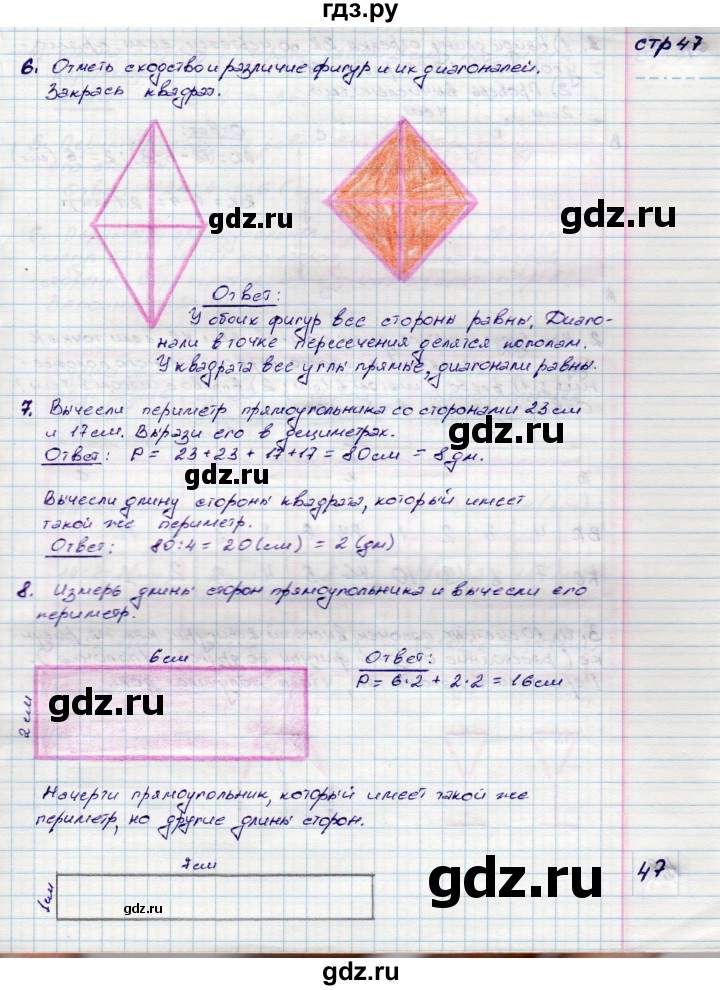 гдз.ру
стр 47
6. Отметь сходство и различие фигур и их диагоналей.
Закрась квадрат.
gdz.ru
gdz.ru
Ответ:
У обоих фигур все стороны равны. Диаго-
нали в точке пересечения делятся пополам.
У квадрата все углы прямые, диагонали равны.
7. Вычесли периметр прямоугольника со сторонами 23 см
и 17 см. Вырази его в дециметрах.
gdz.ru
Ответ: P = 23+23+17+17 = 80 см = 8 дм.
Вычесли длину стороны квадрата, который имеет
такой же периметр.
Ответ: 80:4 = 20 (см) = 2 (дм)
gdz.ru
8. Измерь длины сторон прямоугольника и вычесли его
периметр.
6 см
Ответ:
P = 6·2 + 2·2 = 16 см
2 см
gdz.ru
gdz.ru
Начерти прямоугольник, который имеет такой же
периметр, но другие длины сторон.
7 см
1 см
gdz.ru
gdz.ru
47
gdz.ru